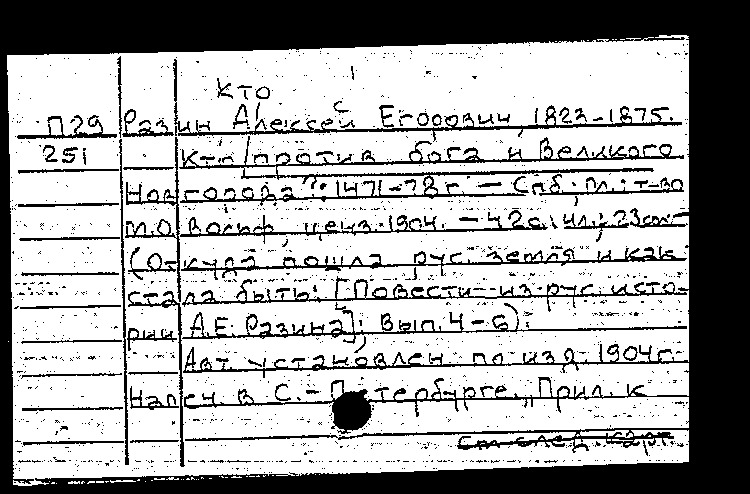 Кто
П29 Разин Алексей Егорович, 1823-1875.
251 Кто против бога и Великого
Новгорода?: 1471-78 г. — Спб.; М.: т-во
М.О. Вольф, ценз. 1904. — 42 с.: ил.; 23 см —
(Откуда пошла рус. земля и как
стала быть: [Повести из рус. исто-
рии А.Е. Разина]; Вып. 4-6).
Авт. установлен по изд. 1904 г.
Напеч. в С.-Петербурге. „Прил. к
см. след. карт.